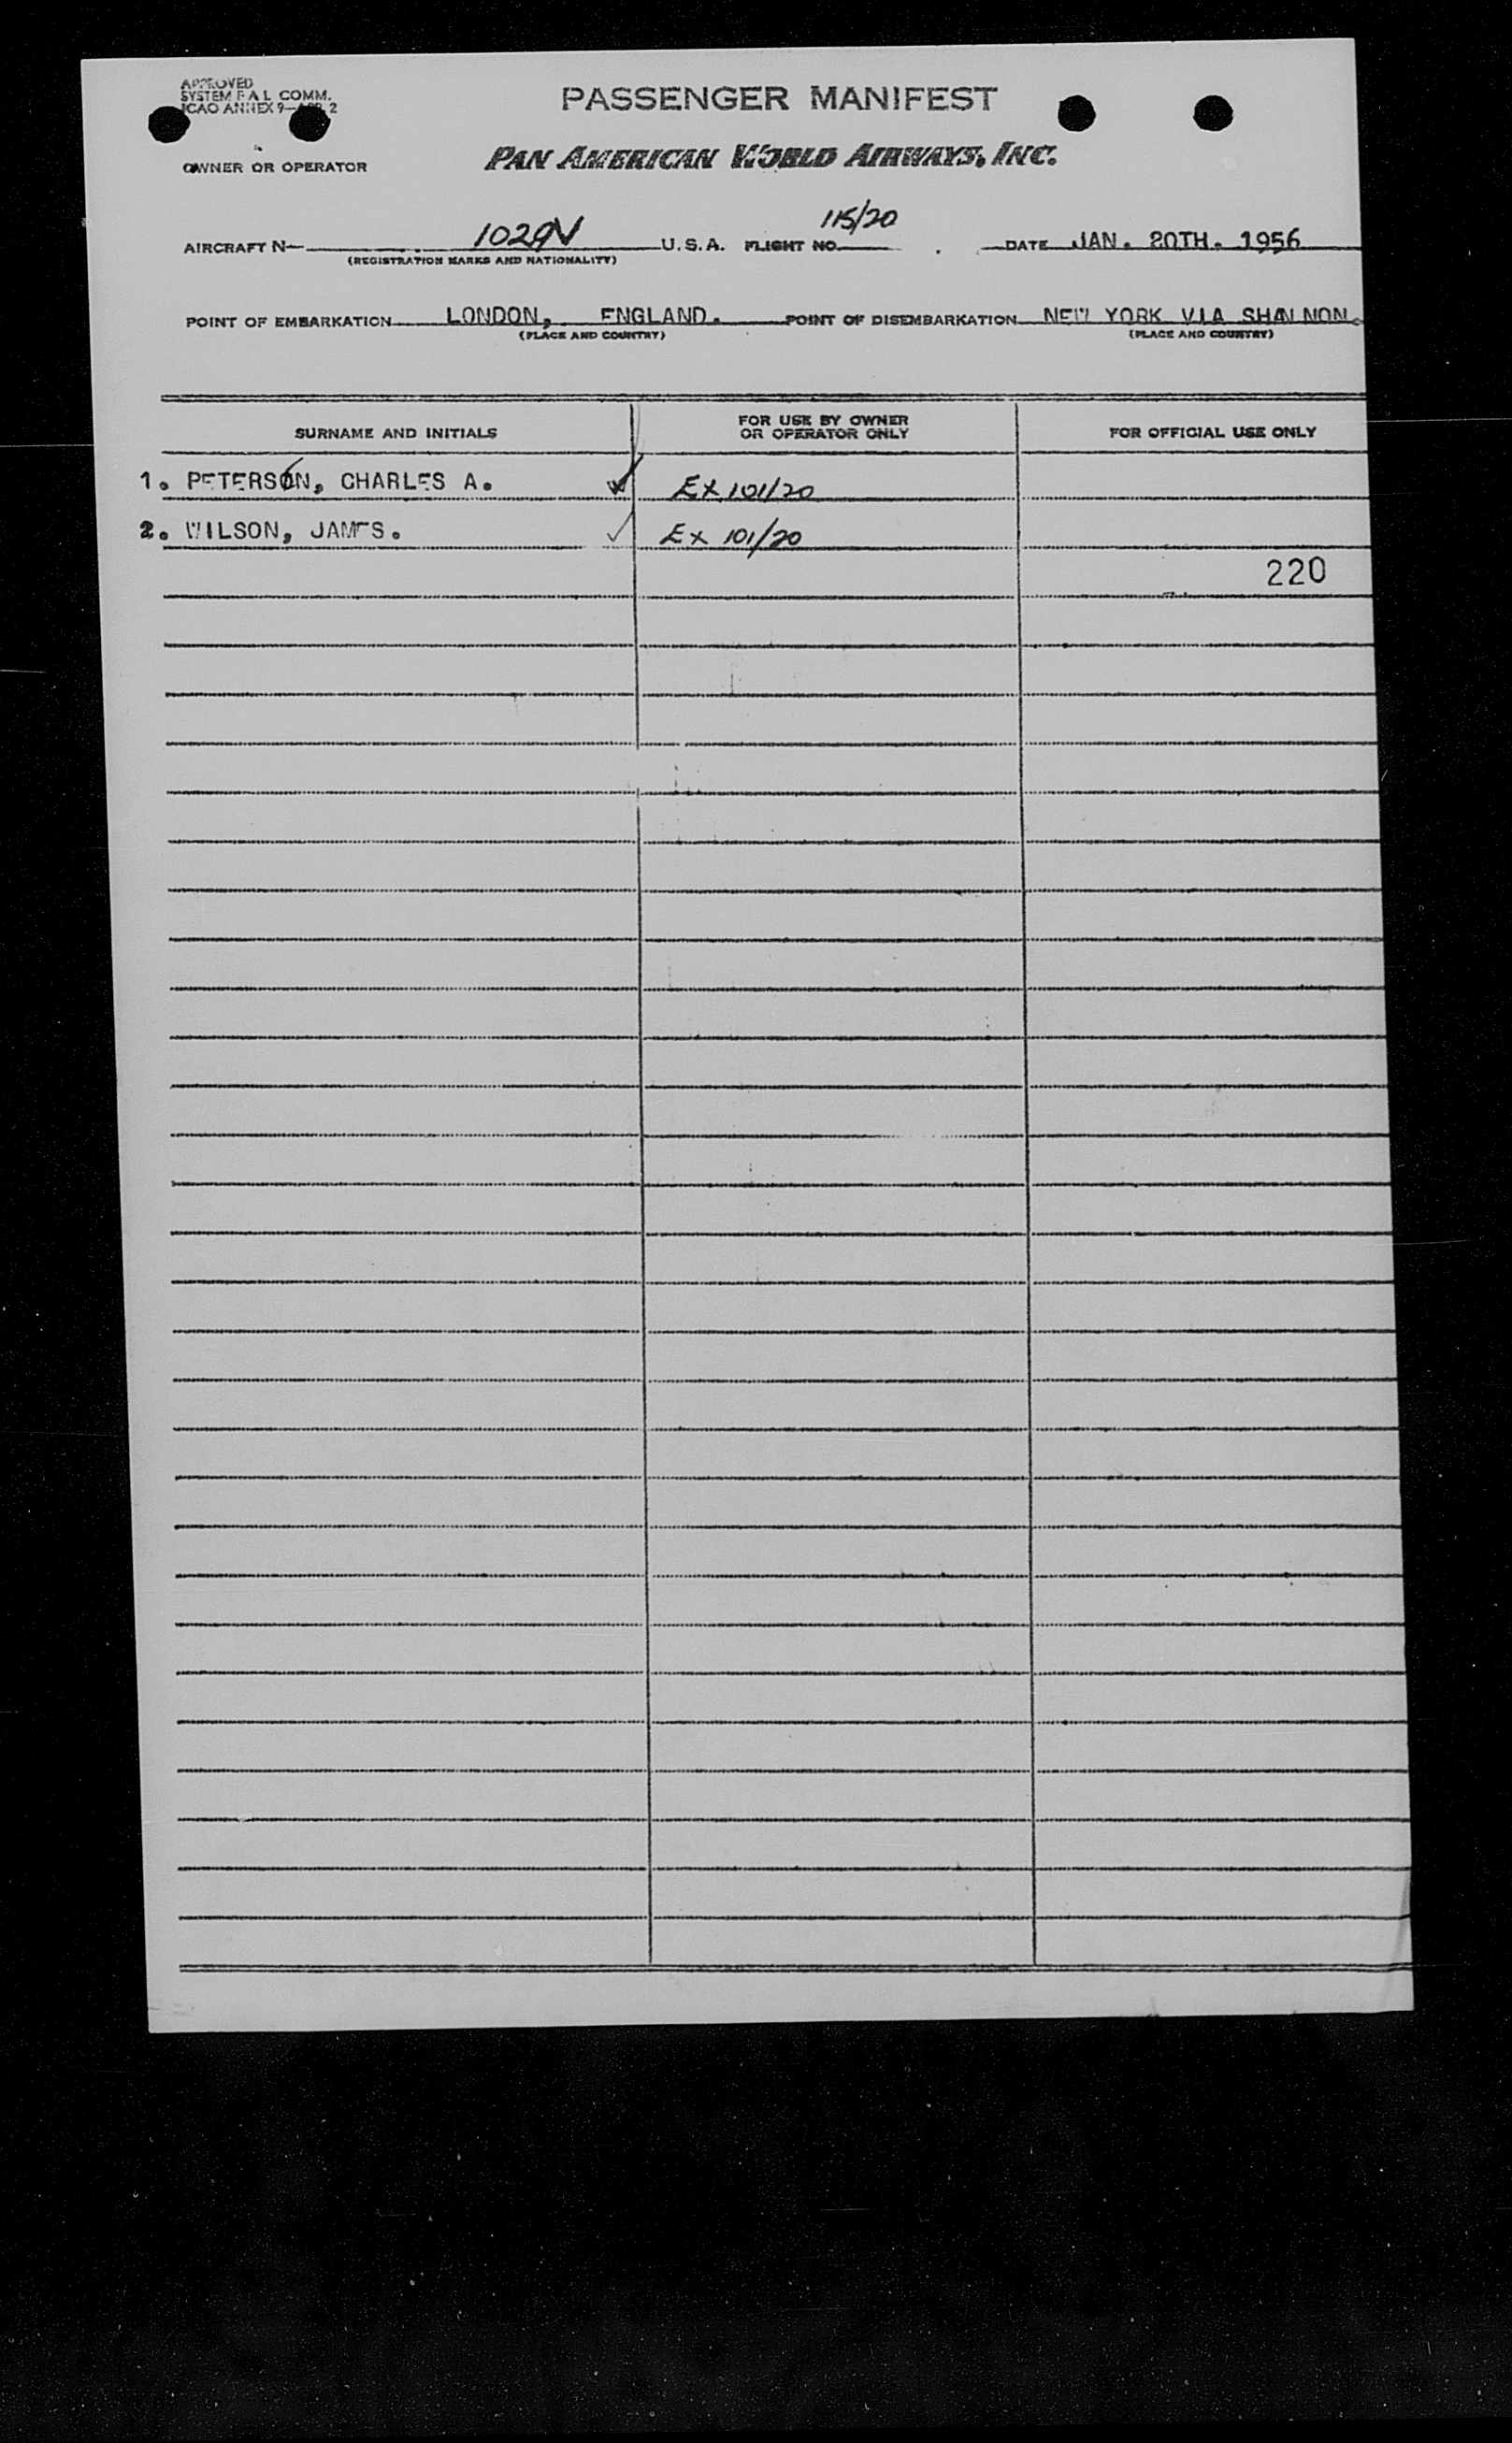 APPROVED
SYSTEM F A L COMM.
ICAO ANNEX 9—APP. 2
PASSENGER MANIFEST
OWNER OR OPERATOR PAN AMERICAN WORLD AIRWAYS, INC.
AIRCRAFT N— 1029V U.S.A. FLIGHT NO. 115/20 DATE JAN. 20TH. 1956
(REGISTRATION MARKS AND NATIONALITY)
POINT OF EMBARKATION LONDON, ENGLAND. POINT OF DISEMBARKATION NEW YORK VIA SHANNON.
(PLACE AND COUNTRY) (PLACE AND COUNTRY)
SURNAME AND INITIALS FOR USE BY OWNER OR OPERATOR ONLY FOR OFFICIAL USE ONLY
1. PETERSON, CHARLES A. ✓ Ex 101/20
2. WILSON, JAMES. ✓ Ex 101/20
220